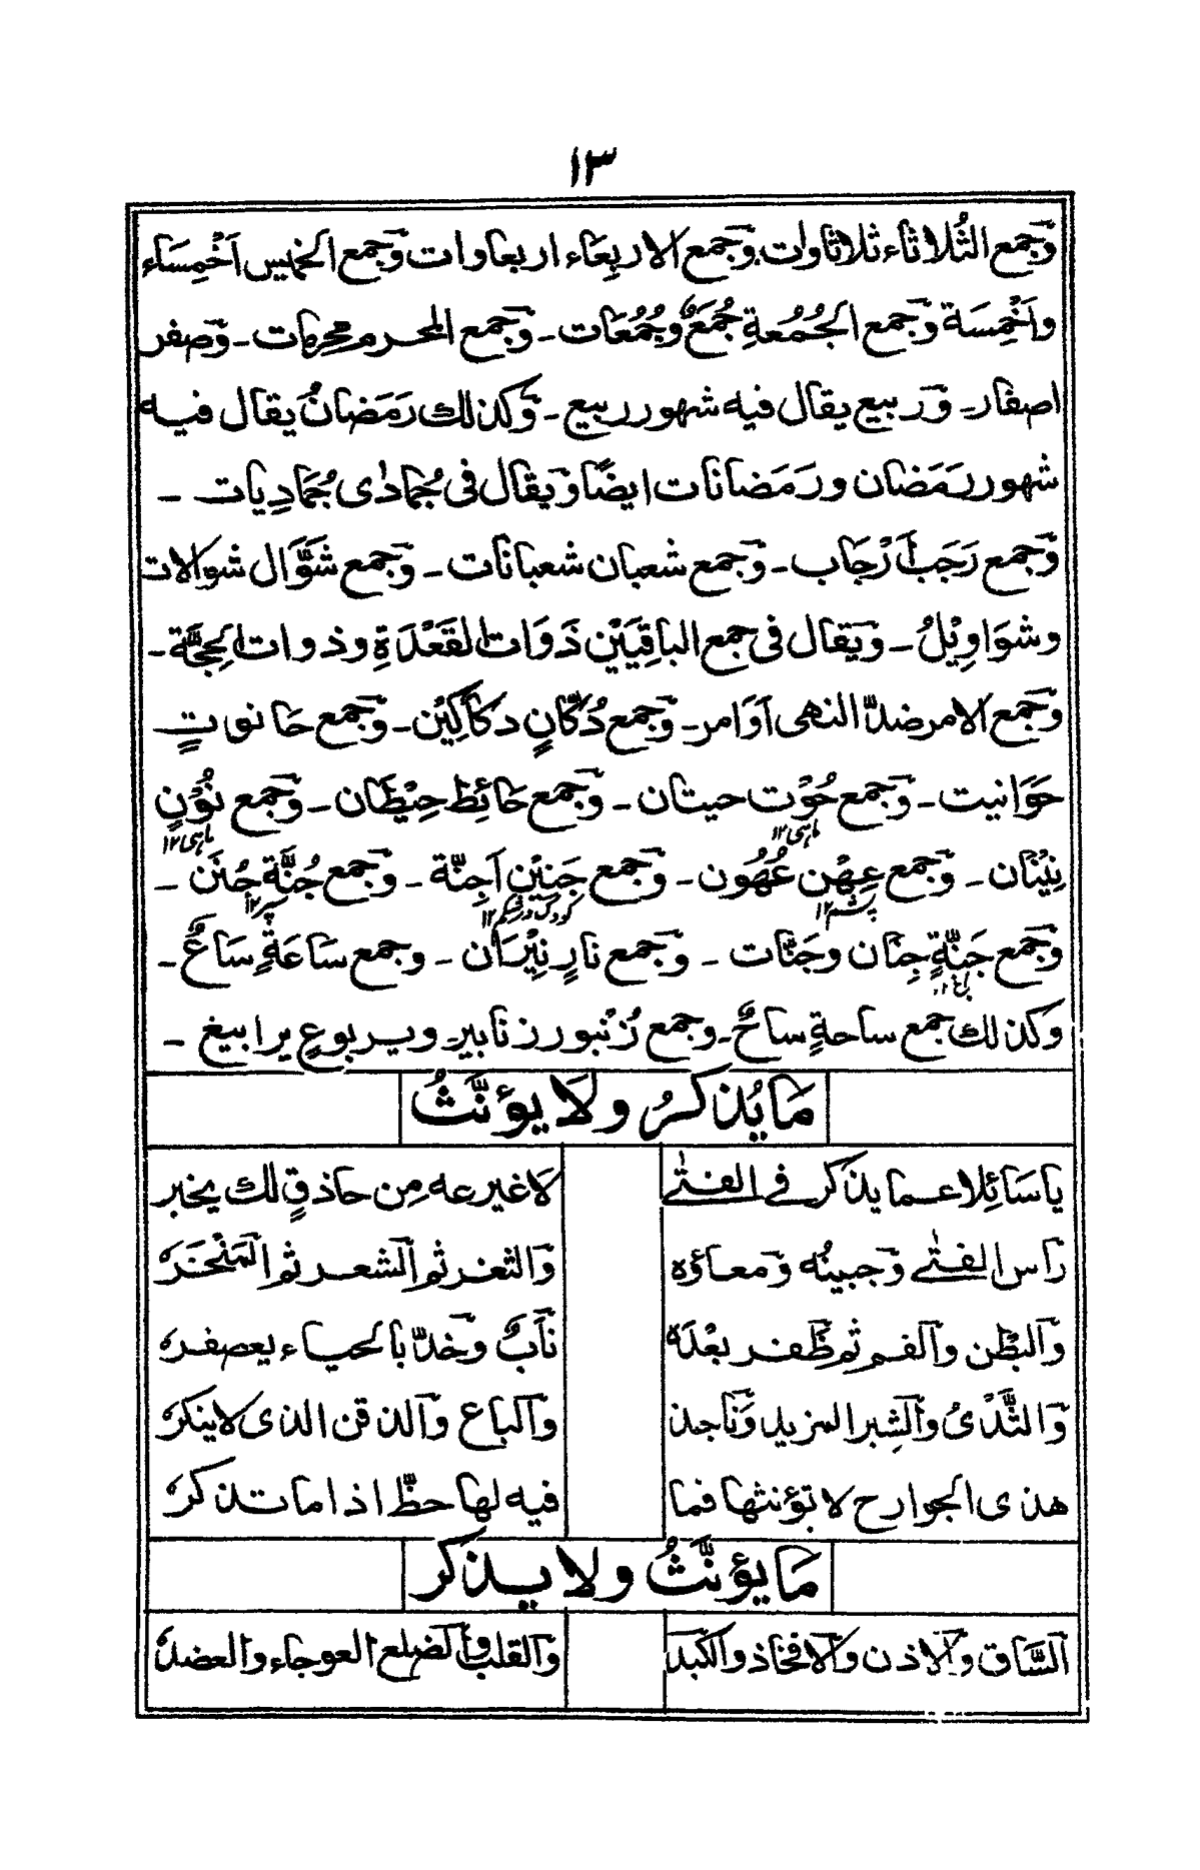 ١٣
وجمع الثُّلاثاء ثلاثاوات وجمع الاربِعَاء اربعاوات وجمع الخميس اَخْمِسَاء
واَخْمِسَة وجمع الجُمُعةِ جُمَعٌ وجُمُعَات - وجمع المحرم محرمات - وصفر
اصفار - وربيع يقال فيه شهور ربيع - وكذلك رَمَضانُ يقال فيه
شهور رمَضان ورمَضانات ايضًا ويقال فى جُمادٰى جُمَادِيات -
وجمع رَجَب اَرْجَاب - وجمع شعبان شعبانات - وجمع شَوَّال شوالات
وشوَاوِيْلُ - ويقال فى جمع الباقِيَيْن ذَوَات القَعْدَةِ وذوات الحِجَّة -
وجمع الامر ضدّ النهى اَوَامر - وجمع دُكّانٍ دكاكِيْن - وجمع حانوتٍ
حَوَانيت - وجمع حُوْت حيتان - وجمع حَائِط حِيْطَان - وجمع نُوْنٍ
ماہی١٢ ماہی١٢
نِيْنَان - وجمع عِهْن عُهُون - وجمع جَنِيْنٍ اَجِنّة - وجمع جُنَّةٍ جُنَن -
پشم١٢ كودک در شکم١٢ سپر١٢
وجمع جَنّةٍ جِنَان وجَنّات - وجمع نارٍ نِيْرَان - وجمع سَاعَةٍ سَاعٌ -
باغ١٢
وكذلك جمع ساحةٍ ساحٌ - وجمع زُنْبور زنابير - ويربوعٍ يرابيع -
مَا يُذكرُ ولَا يؤنَّثُ
يا سَائِلا عما يذكر فى الفتٰى لا غيرعه مِن حاذقٍ لك يخبر
رَاس الفتٰى وجبينُه ومعاؤه والثغر ثم الشعر ثم المَنْخَرَه
والبَطْن والفم ثم ظَفر بعْدَهٗ نَابٌ وخدّ بالحياء يعصفره
والثَّدْىُ والشِبر المزيد وناجذ والباع والذقن الذى لا ينكره
هذى الجوارح لا تؤنثها فما فيه لها حظّ اذا ما تذكره
مَا يؤنَّثُ ولا يذكر
السَّاق والاذن والافخاذ والكبد والقلب والضلع العوجاء والعضد